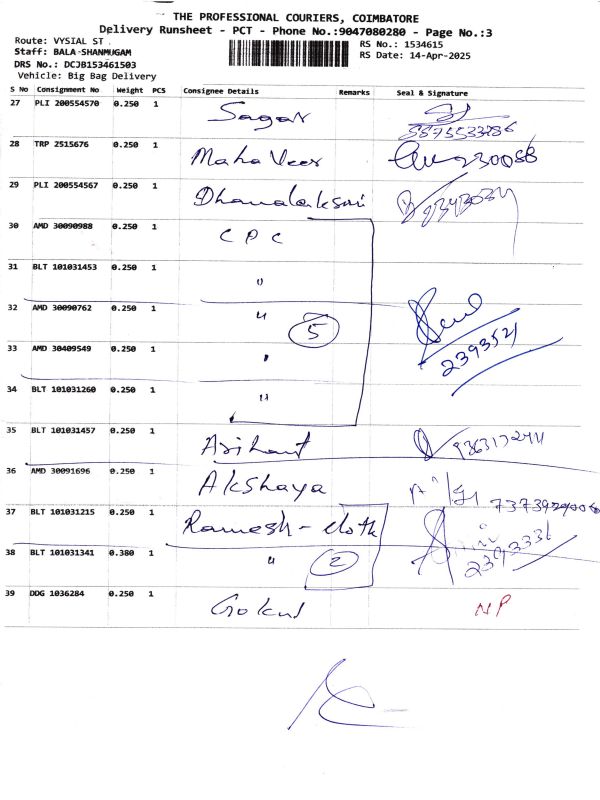 THE PROFESSIONAL COURIERS, COIMBATORE
Delivery Runsheet - PCT - Phone No.:9047080280 - Page No.:3
Route: VYSIAL ST
Staff: BALA-SHANMUGAM
DRS No.: DCJB153461503
Vehicle: Big Bag Delivery
RS No.: 1534615
RS Date: 14-Apr-2025
S No Consignment No Weight PCS Consignee Details Remarks Seal & Signature
27 PLI 200554570 0.250 1 Sagar
28 TRP 2515676 0.250 1 Maha Veer 230058
29 PLI 200554567 0.250 1 Dhanalaksmi
30 AMD 30090988 0.250 1 CPC
31 BLT 101031453 0.250 1 "
32 AMD 30090762 0.250 1 " 5
33 AMD 30409549 0.250 1 " 2393521
34 BLT 101031260 0.250 1 "
35 BLT 101031457 0.250 1 Arihant
36 AMD 30091696 0.250 1 Akshaya
37 BLT 101031215 0.250 1 Ramesh - cloth
38 BLT 101031341 0.380 1 " 2 2393331
39 DDG 1036284 0.250 1 Gokul NP